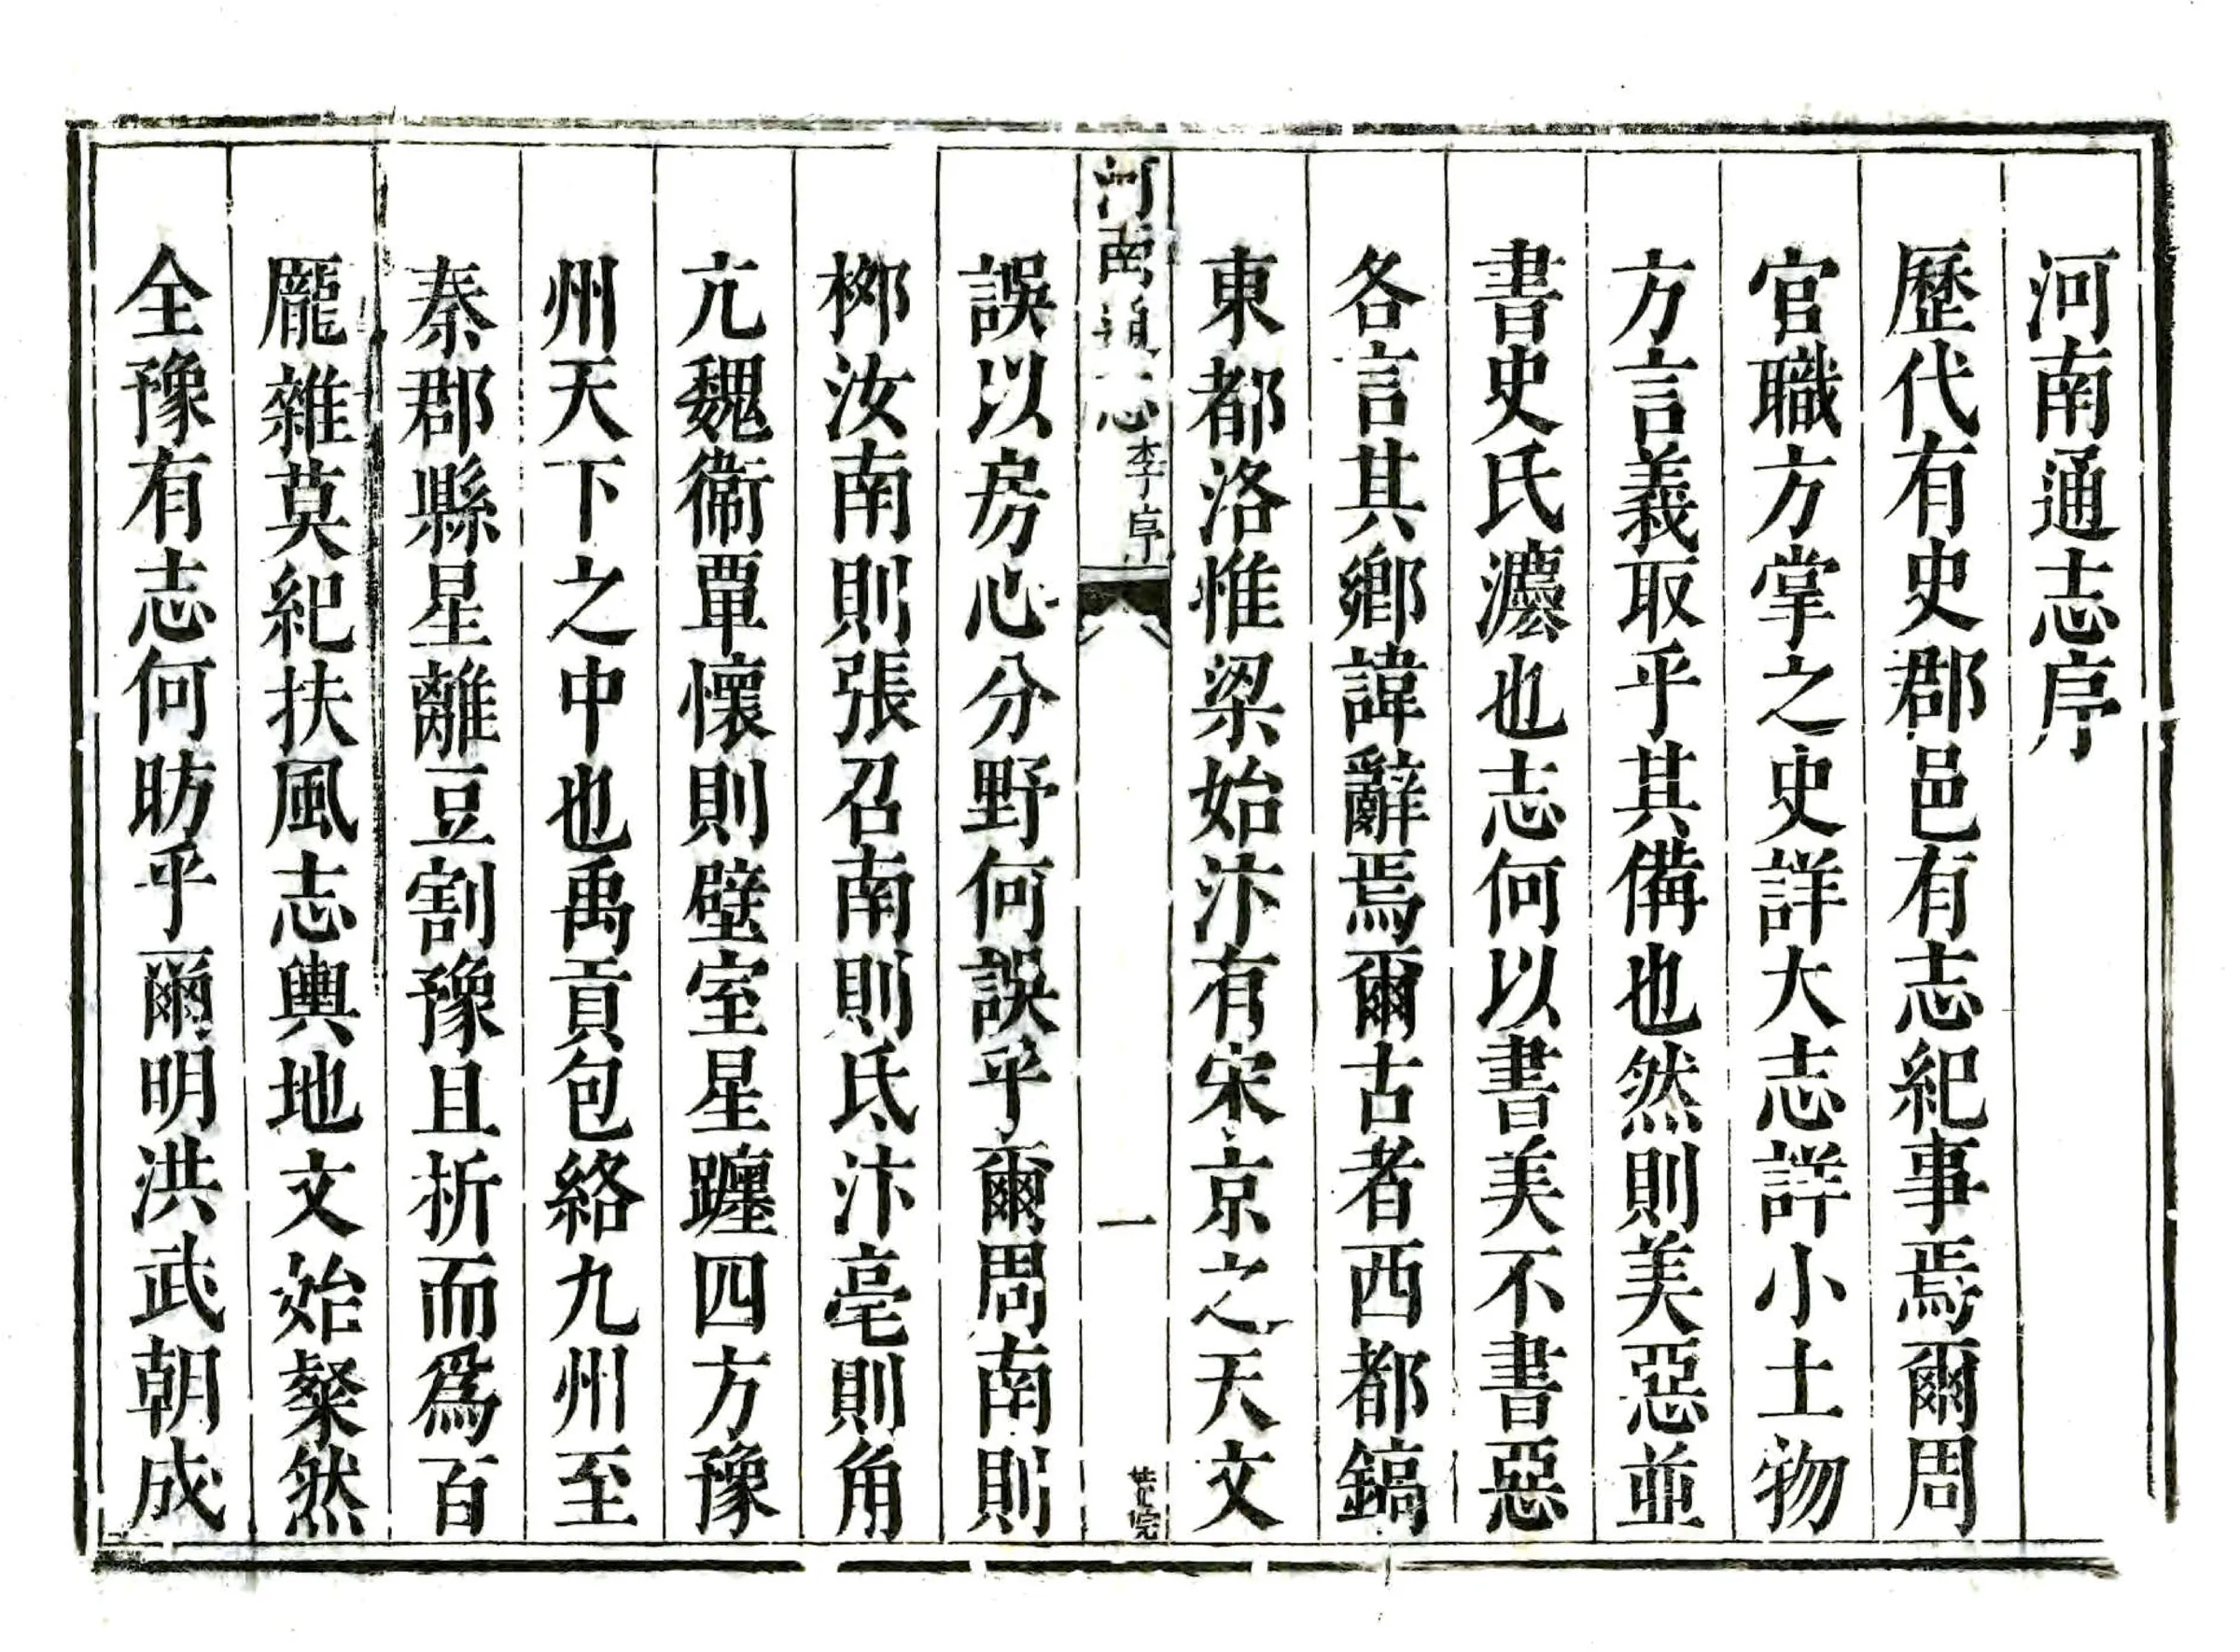 河南通志序
歷代有史郡邑有志紀事焉爾周
官職方掌之史詳大志詳小土物
方言義取乎其備也然則美惡並
書史氏灋也志何以書美不書惡
各言其鄉諱辭焉爾古者西都鎬
東都洛惟梁始汴有宋京之天文
河南通志 李序 一
誤以房心分野何誤乎爾周南則
桺汝南則張召南則氐汴亳則角
亢魏衞覃懷則壁室星躔四方豫
州天下之中也禹貢包絡九州至
秦郡縣星離豆割豫且析而爲百
龎雜莫紀扶風志輿地文始粲然
全豫有志何昉乎爾明洪武朝成